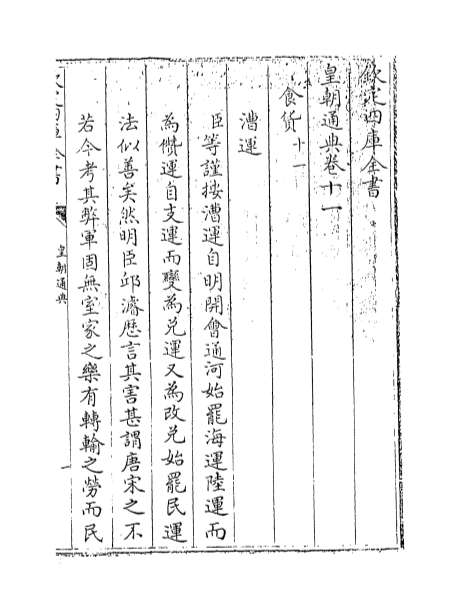 欽定四庫全書
皇朝通典卷十一
食貨十一
漕運
臣等謹按漕運自明開會通河始罷海運陸運而
為儹運自支運而變為兌運又為改兌始罷民運
法似善矣然明臣邱濬歴言其害甚謂唐宋之不
若今考其弊軍固無室家之樂有轉輸之勞而民
欽定四庫全書
皇朝通典
一